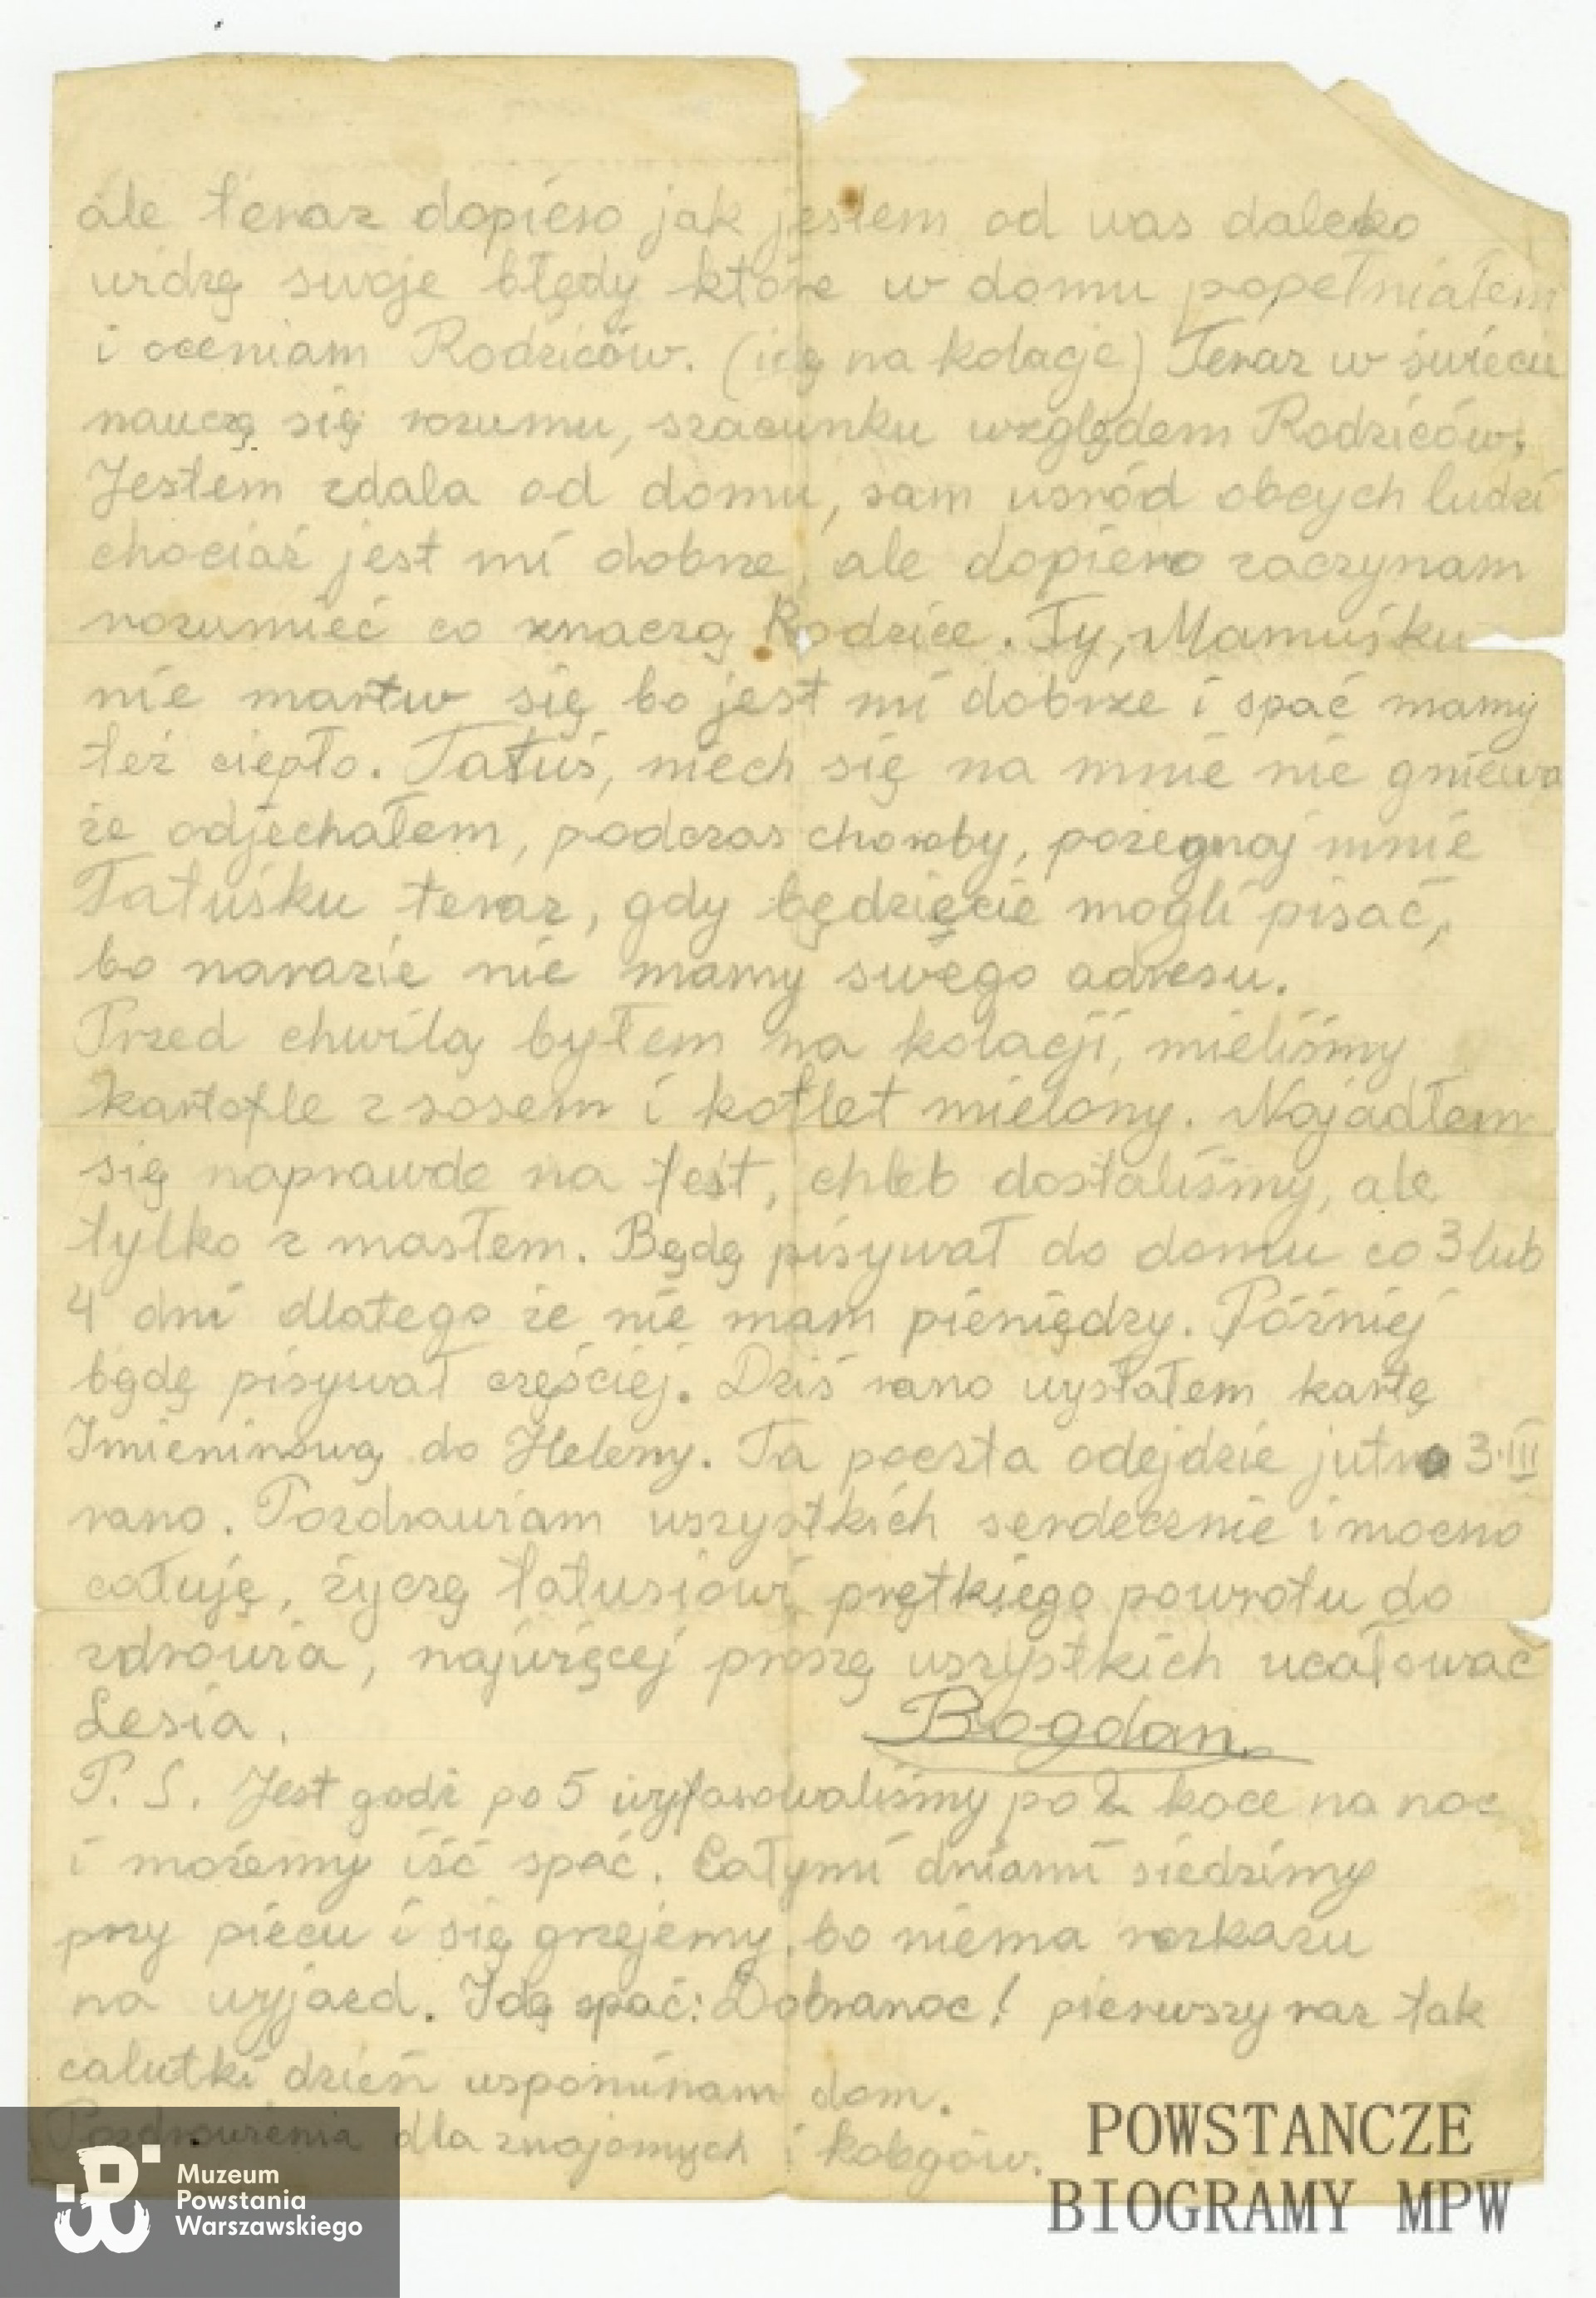 ale teraz dopiero jak jestem od was daleko
widzę swoje błędy które w domu popełniałem
i oceniam Rodziców. (idę na kolacje) Teraz w świecie
nauczę się rozumu, szacunku względem Rodziców.
Jestem zdala od domu, sam wsród obcych ludzi
chociaż jest mi dobrze, ale dopiero zaczynam
rozumieć co znaczą Rodzice. Ty, Mamuśku
nie martw się bo jest mi dobrze i spać mamy
też ciepło. Tatuś, niech się na mnie nie gniewa
że odjechałem, podczas choroby, pożegnaj mnie
Tatuśku teraz, gdy będziecie mogli pisać,
bo narazie nie mamy swego adresu.
Przed chwilą byłem na kolacji, mieliśmy
kartofle z sosem i kotlet mielony. Najadłem
się naprawde na fest, chleb dostaliśmy, ale
tylko z masłem. Będę pisywał do domu co 3 lub
4 dni dlatego że nie mam pieniędzy. Później
będę pisywał częściej. Dziś rano wysłałem kartę
Imieninową do Heleny. Ta poczta odejdzie jutro 3.III
rano. Pozdrawiam wszystkich serdecznie i mocno
całuję, życzę tatusiowi prętkiego powrotu do
zdrowia, najwięcej proszę wszystkich ucałować
Lesia. Bogdan.
P. S. Jest godz po 5 wyfasowaliśmy po 2 koce na noc
i możemy iść spać. Całymi dniami siedzimy
przy piecu i się grzejemy, bo niema rozkazu
na wyjazd. Idę spać: Dobranoc! pierwszy raz tak
calutki dzień wspominam dom.
Pozdrowienia dla znajomych i kolegów.
POWSTANCZE
BIOGRAMY MPW
Muzeum
Powstania
Warszawskiego